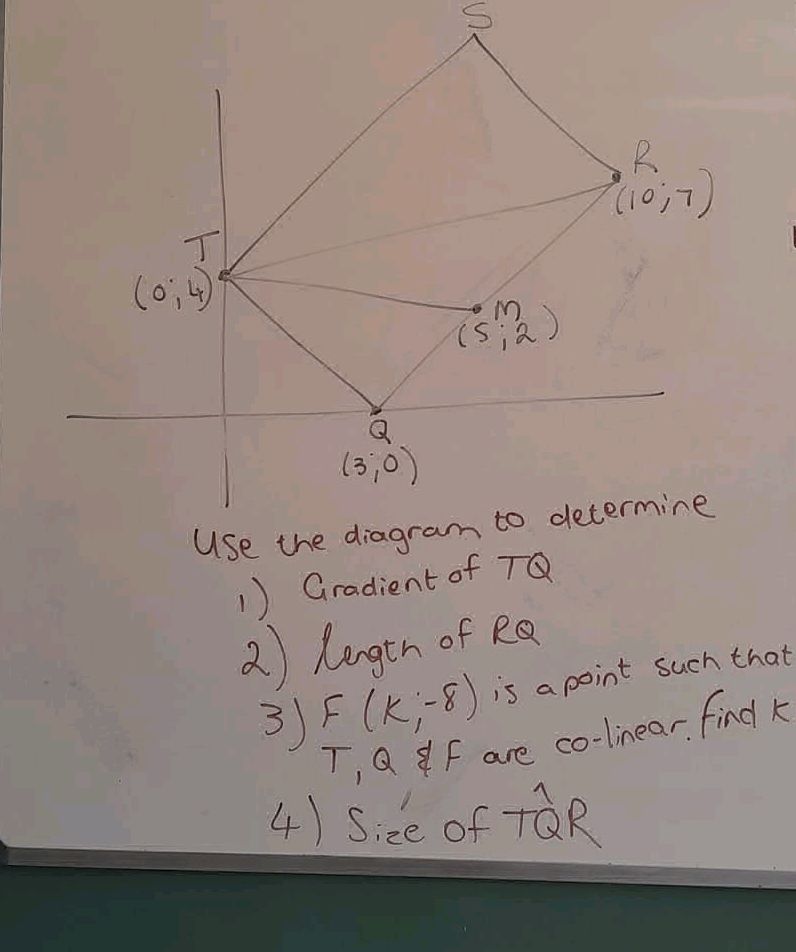 S
R
(10;7)
T
(0;4)
M
(5;2)
Q
(3;0)
Use the diagram to determine
1) Gradient of TQ
2) length of RQ
3) F (K;-8) is a point such that
T, Q & F are co-linear. Find K
4) Size of TQ̂R